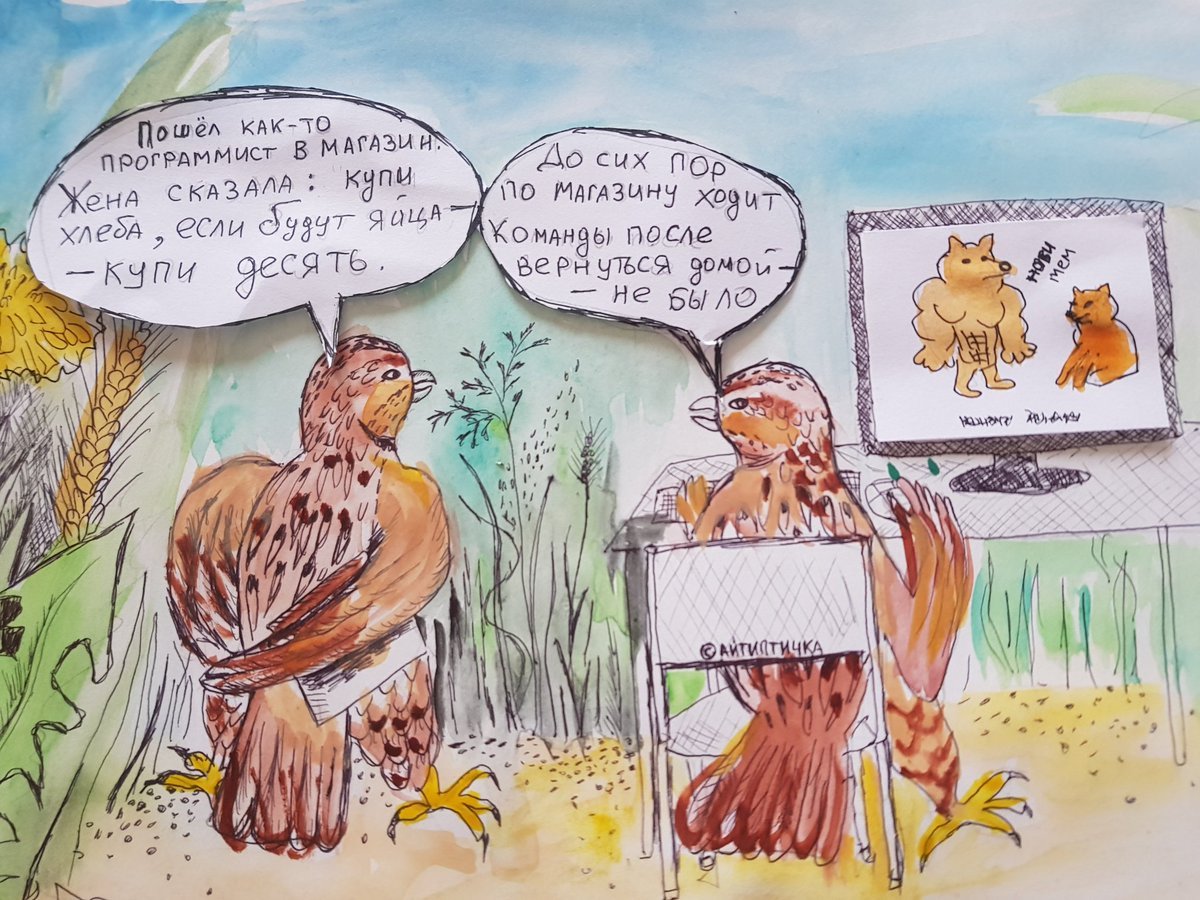 Пошёл как-то
программист в магазин.
Жена сказала: купи
хлеба, если будут яйца —
— купи десять.
До сих пор
по магазину ходит
Команды после
вернуться домой —
— не было
мем
© АЙТИПТИЧКА